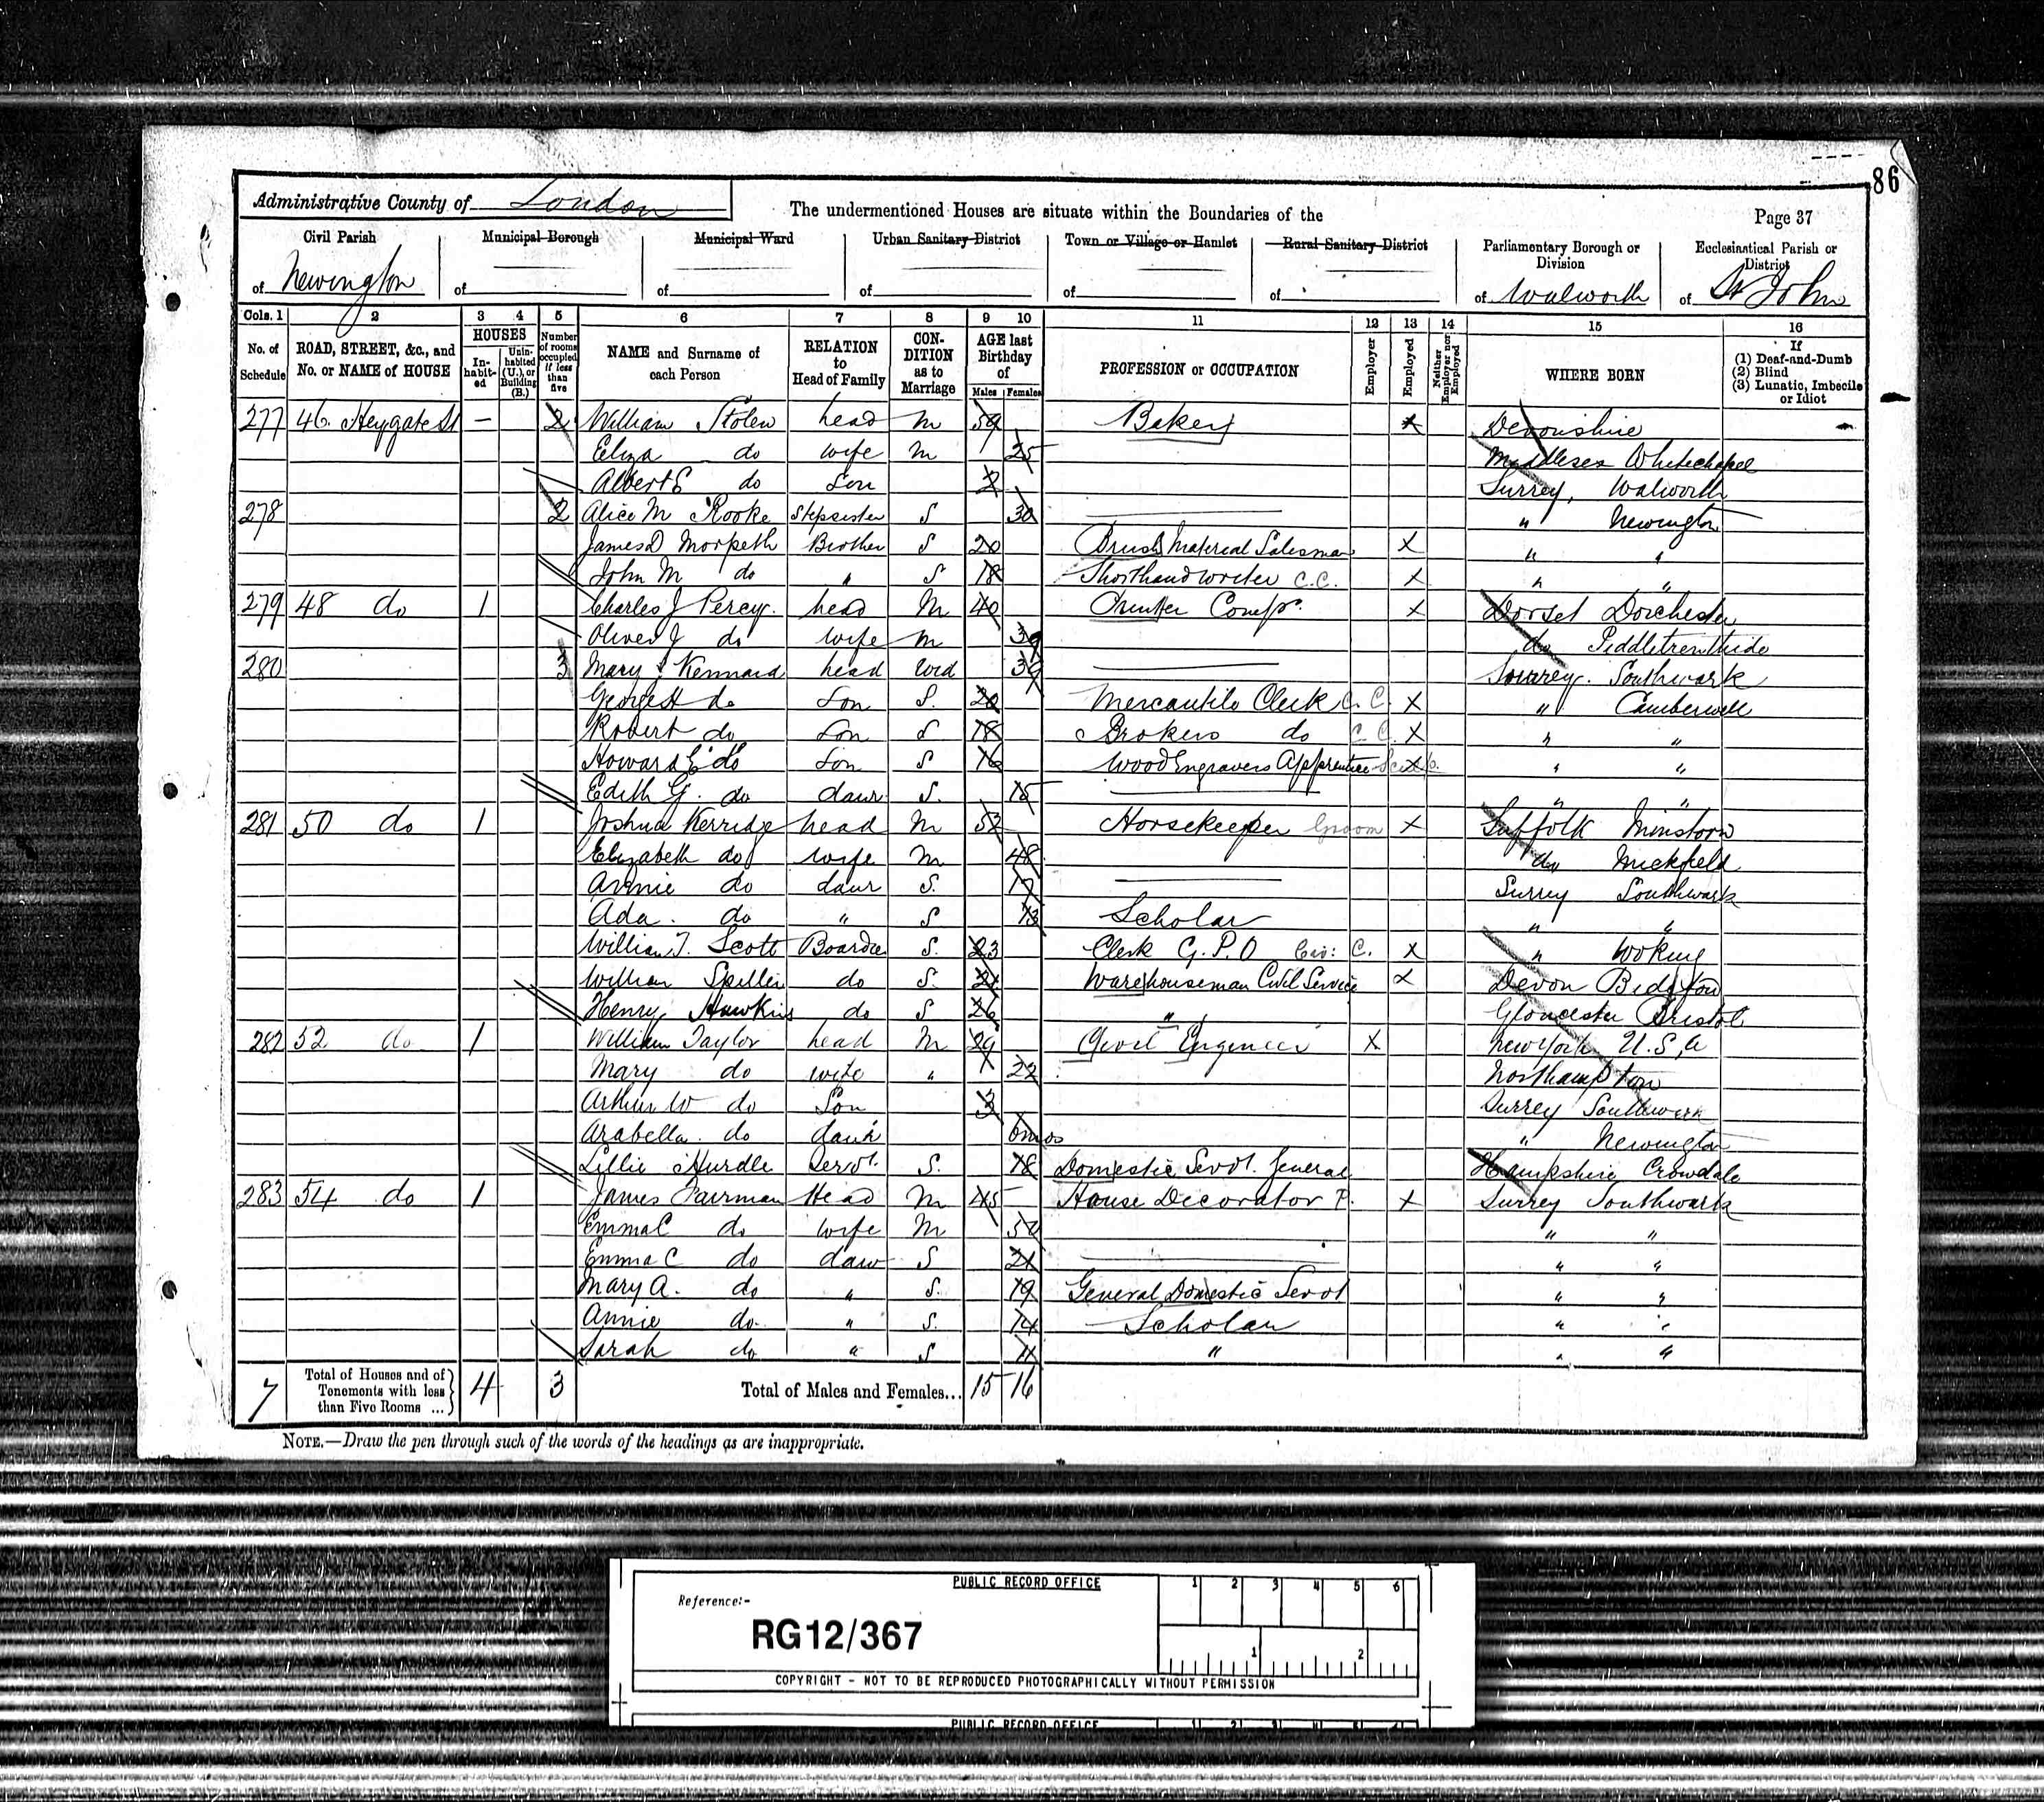 86
Administrative County of London
The undermentioned Houses are situate within the Boundaries of the
Page 37
Civil Parish of Newington
Municipal Borough of
Municipal Ward of
Urban Sanitary District of
Town or Village or Hamlet of
Rural Sanitary District of
Parliamentary Borough or Division of Walworth
Ecclesiastical Parish or District of St John
Cols. 1 2 3 4 5 6 7 8 9 10 11 12 13 14 15 16
No. of Schedule
ROAD, STREET, &c., and No. or NAME of HOUSE
HOUSES
Inhabited
Uninhabited (U.), or Building (B.)
Number of rooms occupied if less than five
NAME and Surname of each Person
RELATION to Head of Family
CONDITION as to Marriage
AGE last Birthday of
Males
Females
PROFESSION or OCCUPATION
Employer
Employed
Neither Employer nor Employed
WHERE BORN
If (1) Deaf-and-Dumb (2) Blind (3) Lunatic, Imbecile or Idiot
277 46 Heygate St — 2 William Stolen head M 39 Baker X Devonshire
Eliza do wife M 25 Middlesex Whitechapel
Albert E do Son 2 Surrey, Walworth
278 2 Alice M Rooke Stepsister S 30 " Newington
James D Morpeth Brother S 20 Brush Material Salesman X " "
John M do " S 18 Shorthand writer C.C. X " "
279 48 do 1 Charles J Percy head M 40 Printer Compr. X Dorset Dorchester
Oliver J do wife M 39 do Piddletrenthide
280 3 Mary Kennard head Wid 39 Surrey Southwark
George H do Son S. 20 Mercantile Clerk C.C. X " Camberwell
Robert do Son S 18 Brokers do C.C. X " "
Howard E do Son S 16 Wood Engravers Apprentice X " "
Edith G. do daur S. 15 " "
281 50 do 1 Joshua Kerridge head M 52 Horsekeeper Groom X Suffolk
Elizabeth do wife M 48 do Mickfield
Annie do daur S. 17 Surrey Southwark
Ada do " S 13 Scholar " "
William T. Scott Boarder S. 23 Clerk G.P.O Civ: C. X " Woking
William Spiller do S. 21 Warehouseman Civil Service X Devon
Henry Hawkins do S 26 " Gloucester Bristol
282 52 do 1 William Taylor head M 29 Civil Engineer X New York U.S,A
Mary do wife " 22 Northampton
Arthur W do Son 3 Surrey Southwark
Arabella do 6mos " Newington
Lillie Hurdle Servt. S. 18 Domestic Servt. General Hampshire
283 54 do 1 James Fairman Head M 45 House Decorator P. X Surrey Southwark
Emma C do wife M 50 " "
Emma C do daur S 21 " "
Mary A. do " S. 19 General Domestic Servt " "
Annie do " S. 14 Scholar " "
Sarah do " S 11 " " "
7 Total of Houses and of Tenements with less than Five Rooms ... 4 3 Total of Males and Females... 15 16
NOTE.—Draw the pen through such of the words of the headings as are inappropriate.
PUBLIC RECORD OFFICE 1 2 3 4 5 6
Reference:-
RG12/367
1 2
COPYRIGHT - NOT TO BE REPRODUCED PHOTOGRAPHICALLY WITHOUT PERMISSION
PUBLIC RECORD OFFICE 1 2 3 4 5 6